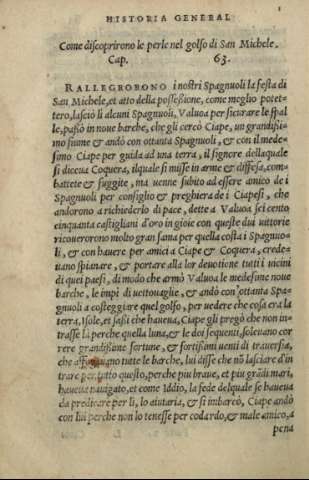 HISTORIA GENERAL
Come discoprirono le perle nel golfo di San Michele.
Cap. 63.
RALLEGRORONO i nostri Spagnuoli la festa di
San Michele, et atto della possessione, come meglio potet-
tero, lasciò li alcuni Spagnuoli, Valuoa per sicurare le spal
le, passò in noue barche, che gli cercò Ciape, un grandissi-
mo fiume & andò con ottanta Spagnuoli, & con il mede-
simo Ciape per guida ad una terra, il signore della quale
si diceua Coquera, il quale si misse in arme & diffesa, com-
battete & fuggite, ma uenne subito ad essere amico de i
Spagnuoli per consiglio & preghiera de i Ciapesi, che
andorono a richiederlo di pace, dette a Valuoa sei cento
cinquanta castigliani d'oro in gioie con queste due uittorie
ricouerorono molto gran fama per quella costa i Spagnuo-
li, & con hauere per amici a Ciape & Coquera, crede-
uano spianare, & portare alla lor deuotione tutti i uicini
di quei paesi, di modo che armò Valuoa le medesime noue
barche, le impì di uettouaglie, & andò con ottanta Spa-
gnuoli a costeggiare quel golfo, per uedere che cosa era la
terra, Isole, et sassi che haueua, Ciape gli pregò che non in-
trasse là perche quella luna, & le doi sequenti, soleuano cor
rere grandissime fortune, & fortissimi uenti di trauersia,
che affogauano tutte le barche, lui disse che nõ lasciare d'in
trare per tutto questo, perche piu braue, et piu grãdi mari,
haueua nauigato, et come Iddio, la fede del quale se haueua
da predicare per lì, lo aiutaria, & si imbarcò, Ciape andò
con lui perche non lo tenesse per codardo, & male amico, a
pena